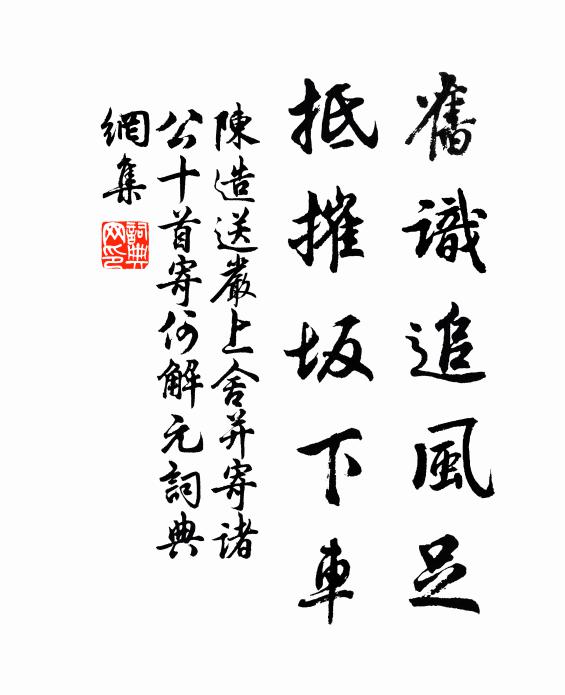 舊識追風足
抵摧坂下車
陳造送嚴上舍并寄諸
公十首寄何解元詞典
網集
詞典網印